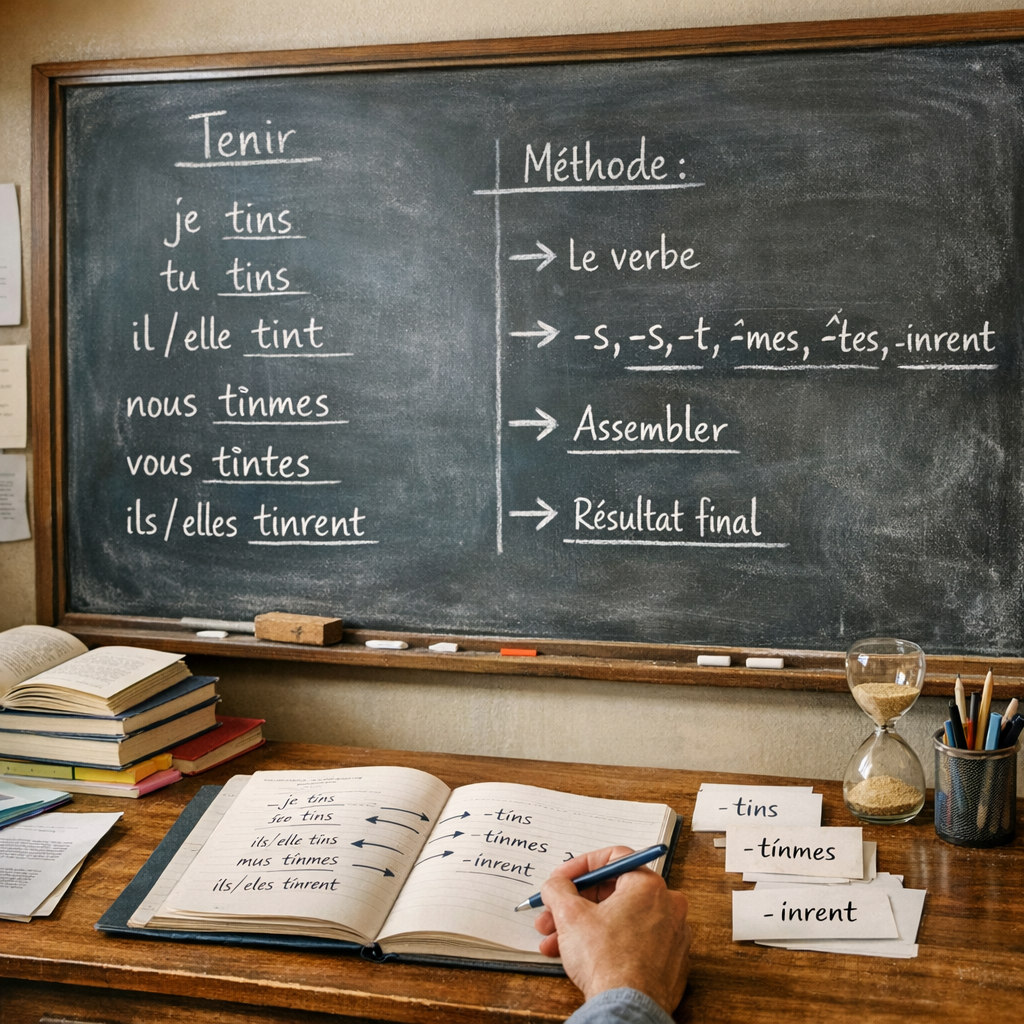 Tenir
je tins
tu tins
il/elle tint
nous tînmes
vous tîntes
ils/elles tinrent
Méthode :
→ Le verbe
→ -s, -s, -t, -̂mes, -̂tes, -inrent
→ Assembler
→ Résultat final
je tins
tins
ils/elle tins
mus tínmes
ils/eles tinrent
-tíns
-tínmes
-inrent
-tins
-tínmes
-inrent